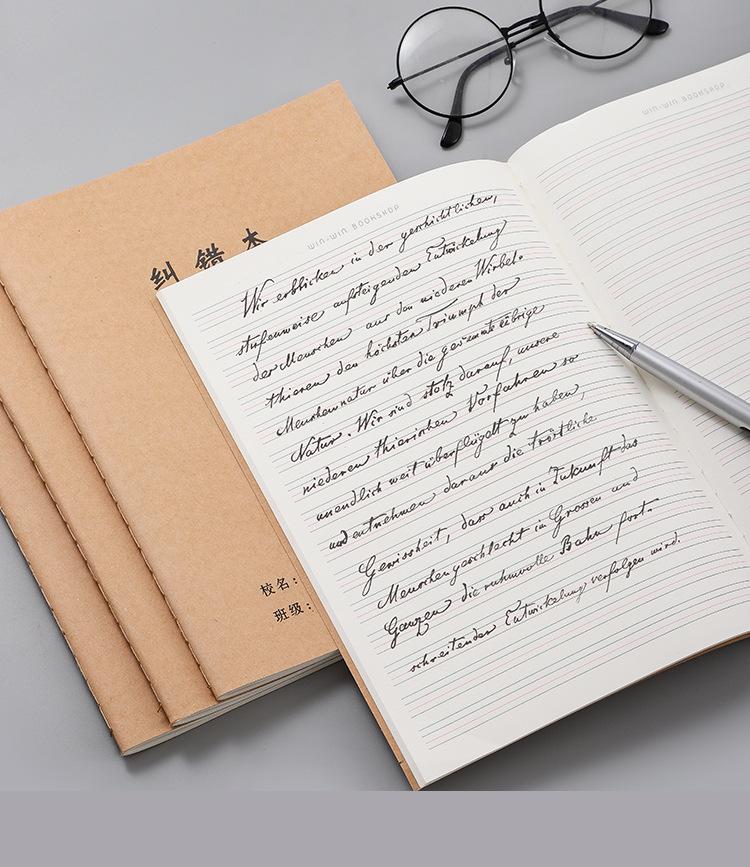 纠错本
校名：
班级：
WIN-WIN BOOKSHOP
Wir erblicken in der geschichtlichen,
stufenweise aufsteigenden Entwickelung
der Menschen aus den niederen Wirbel-
thieren den höchsten Triumph der
Menschennatur über die gesammte übrige
Natur. Wir sind stolz darauf, unsere
niederen thierischen Vorfahren so
unendlich weit überflügelt zu haben,
und entnehmen daraus die tröstliche
Gewissheit, dass auch in Zukunft das
Menschengeschlecht in Grossen und
Ganzen die ruhmvolle Bahn fort-
schreitender Entwickelung verfolgen wird.
WIN-WIN BOOKSHOP